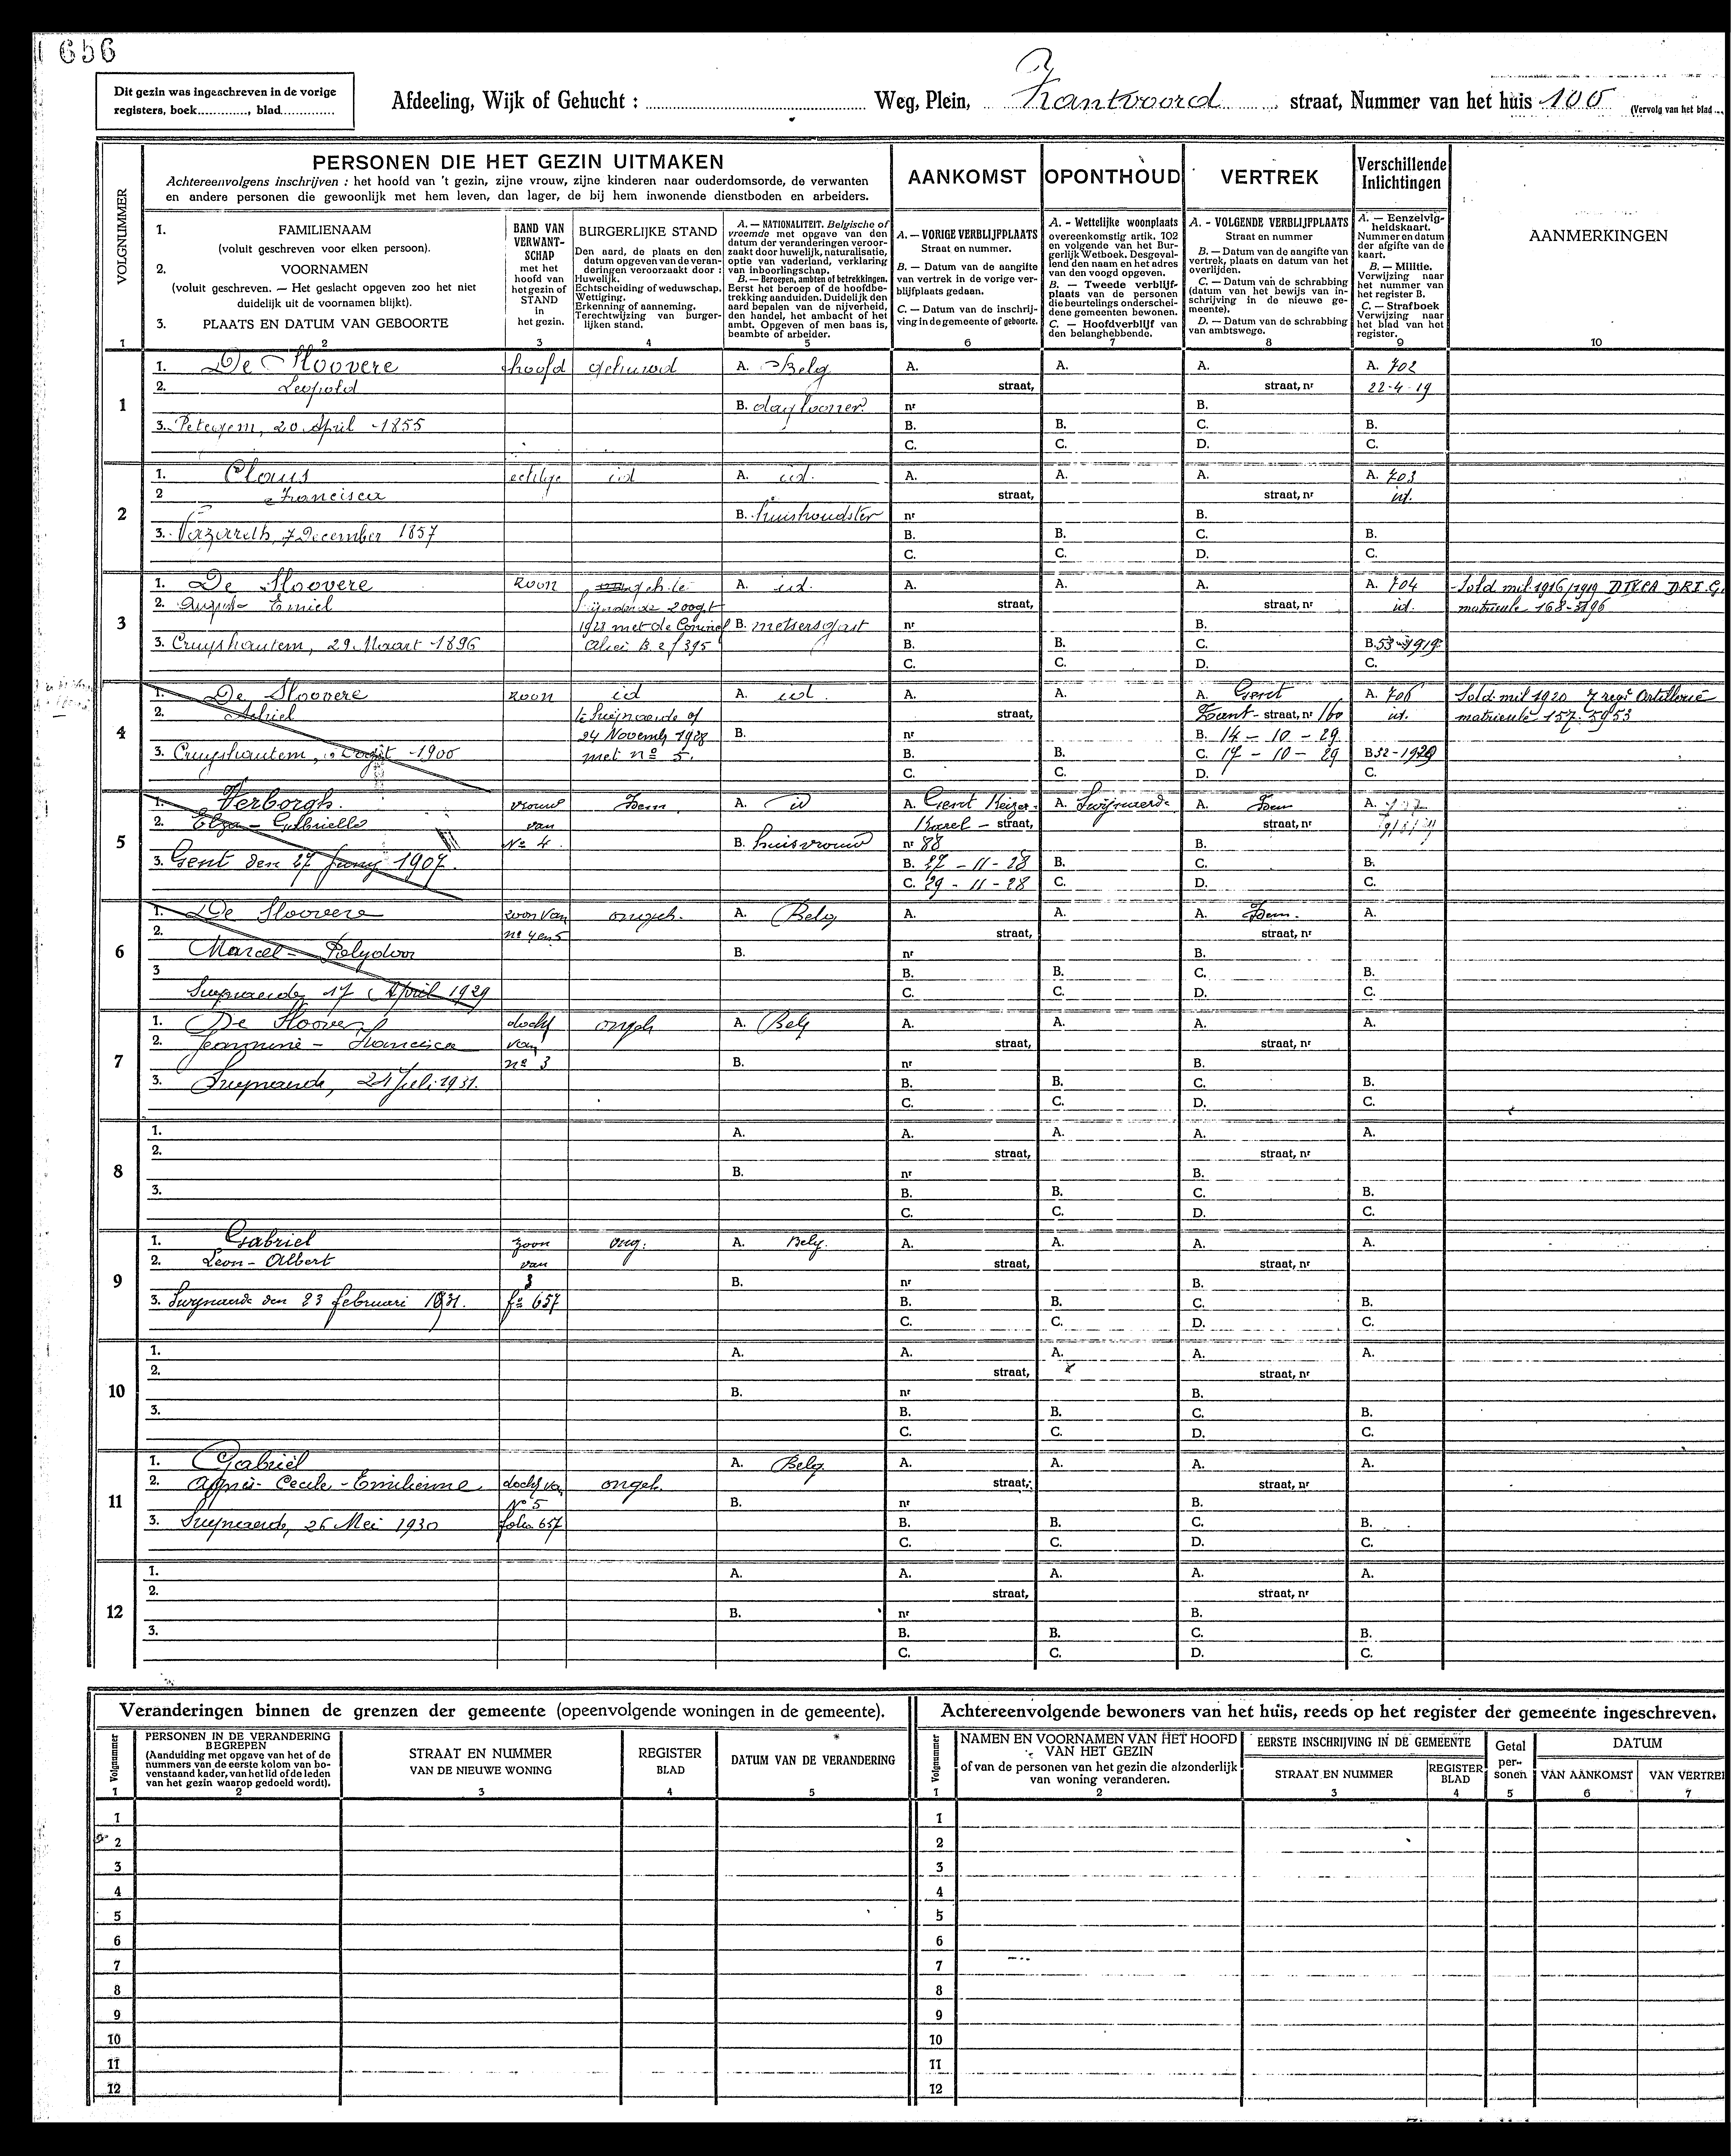 656
Dit gezin was ingeschreven in de vorige
registers, boek............., blad..............
Afdeeling, Wijk of Gehucht : .......... Weg, Plein, Zantvoord straat, Nummer van het huis 100 (Vervolg van het blad ...
PERSONEN DIE HET GEZIN UITMAKEN
Achtereenvolgens inschrijven : het hoofd van 't gezin, zijne vrouw, zijne kinderen naar ouderdomsorde, de verwanten
en andere personen die gewoonlijk met hem leven, dan lager, de bij hem inwonende dienstboden en arbeiders.
AANKOMST
OPONTHOUD
VERTREK
Verschillende
Inlichtingen
AANMERKINGEN
VOLGNUMMER
1.
FAMILIENAAM
(voluit geschreven voor elken persoon).
2.
VOORNAMEN
(voluit geschreven. — Het geslacht opgeven zoo het niet
duidelijk uit de voornamen blijkt).
3. PLAATS EN DATUM VAN GEBOORTE
BAND VAN
VERWANT-
SCHAP
met het
hoofd van
het gezin of
STAND
in
het gezin.
BURGERLIJKE STAND
Den aard, de plaats en den
datum opgeven van de veran-
deringen veroorzaakt door :
Huwelijk.
Echtscheiding of weduwschap.
Wettiging.
Erkenning of aanneming.
Terechtwijzing van burger-
lijken stand.
A. — NATIONALITEIT. Belgische of
vreemde met opgave van den
datum der veranderingen veroor-
zaakt door huwelijk, naturalisatie,
optie van vaderland, verklaring
van inboorlingschap.
B. — Beroepen, ambten of betrekkingen.
Eerst het beroep of de hoofdbe-
trekking aanduiden. Duidelijk den
aard bepalen van de nijverheid,
den handel, het ambacht of het
ambt. Opgeven of men baas is,
beambte of arbeider.
A. — VORIGE VERBLIJFPLAATS
Straat en nummer.
B. — Datum van de aangifte
van vertrek in de vorige ver-
blijfplaats gedaan.
C. — Datum van de inschrij-
ving in de gemeente of geboorte.
A. - Wettelijke woonplaats
overeenkomstig artik. 102
en volgende van het Bur-
gerlijk Wetboek. Desgeval-
lend den naam en het adres
van den voogd opgeven.
B. — Tweede verblijf-
plaats van de personen
die beurtelings onderschei-
dene gemeenten bewonen.
C. — Hoofdverblijf van
den belanghebbende.
A. - VOLGENDE VERBLIJFPLAATS
Straat en nummer
B. — Datum van de aangifte van
vertrek, plaats en datum van het
overlijden.
C. — Datum van de schrabbing
(datum van het bewijs van in-
schrijving in de nieuwe ge-
meente).
D. — Datum van de schrabbing
van ambtswege.
A. — Eenzelvig-
heldskaart.
Nummer en datum
der afgifte van de
kaart.
B. — Militie.
Verwijzing naar
het nummer van
het register B.
C. — Strafboek
Verwijzing naar
het blad van het
register.
1 2 3 4 5 6 7 8 9 10
1
1. De Sloovere hoofd gehuwd A. Belg A. A. A. A. 702
2. Leopold straat, straat, nr 22-4-19
B. daglooner nr B.
3. Petegem, 20 April 1855 B. B. C. B.
C. C. D. C.
2
1. Claus echtge id A. id. A. A. A. A. 703
2 Francisca straat, straat, nr id.
B. huishoudster nr B.
3. Nazareth, 7 December 1857 B. B. C. B.
C. C. D. C.
3
1. De Sloovere zoon geh. te A. id. A. A. A. A. 704 Sold. mil 1916/1919 DTCA D.R.I.G.
2. August - Emiel 2 oogst straat, straat, nr id. matricule 168-3196
1923 met De Coninck B. metsersgast nr B.
3. Cruyshautem, 29 Maart 1896 Alice B. 2 f 395 B. B. C. B. 53-1919
C. C. D. C.
4
1. De Sloovere zoon id A. id. A. A. A. Gent A. 706 Sold. mil 1920 7 regt Artillerie
2. Achiel te Swijnaerde op straat, Zant - straat, nr 160 id. matricule 157.5953
24 Novemb 1928 B. nr B. 14 - 10 - 29
3. Cruyshautem, Oogst 1900 met no 5. B. B. C. 17 - 10 - 29 B 32-1920
C. C. D. C.
5
1. Verborgh. vrouw Idem A. id A. Gent Keizer- A. Swijnaerde A. Idem A.
2. Elza - Gabrielle van Karel - straat, straat, nr
No 4. B. huisvrouw nr 88 B.
3. Gent den 27 Juny 1907. B. 27 - 11 - 28 B. C. B.
C. 29 - 11 - 28 C. D. C.
6
1. De Sloovere zoon van ongeh. A. Belg A. A. A. Idem. A.
2. no 4 en 5 straat, straat, nr
Marcel - Polydoor B. nr B.
3 B. B. C. B.
Swynaerde 17 April 1929 C. C. D. C.
7
1. De Sloovere docht ongeh A. Belg A. A. A. A.
2. Jeannine - Francisca van straat, straat, nr
no 3 B. nr B.
3. Swynaerde, 21 Juli 1931. B. B. C. B.
C. C. D. C.
8
1. A. A. A. A. A.
2. straat, straat, nr
B. nr B.
3. B. B. C. B.
C. C. D. C.
9
1. Gabriel zoon ong. A. Belg. A. A. A. A.
2. Leon - Albert van straat, straat, nr
3 B. nr B.
3. Swynaerde den 23 februari 1931. fo 657 B. B. C. B.
C. C. D. C.
10
1. A. A. A. A. A.
2. straat, straat, nr
B. nr B.
3. B. B. C. B.
C. C. D. C.
11
1. Gabriël A. Belg A. A. A. A.
2. Agnès - Cecile - Emilienne docht van ongeh. straat, straat, nr
No 5 B. nr B.
3. Swynaerde, 26 Mei 1930 folio 657 B. B. C. B.
C. C. D. C.
12
1. A. A. A. A. A.
2. straat, straat, nr
B. nr B.
3. B. B. C. B.
C. C. D. C.
Veranderingen binnen de grenzen der gemeente (opeenvolgende woningen in de gemeente).
Volgnummer
PERSONEN IN DE VERANDERING
BEGREPEN
(Aanduiding met opgave van het of de
nummers van de eerste kolom van bo-
venstaand kader, van het lid of de leden
van het gezin waarop gedoeld wordt).
STRAAT EN NUMMER
VAN DE NIEUWE WONING
REGISTER
BLAD
DATUM VAN DE VERANDERING
1 2 3 4 5
1
2
3
4
5
6
7
8
9
10
11
12
Achtereenvolgende bewoners van het huis, reeds op het register der gemeente ingeschreven.
Volgnummer
NAMEN EN VOORNAMEN VAN HET HOOFD
VAN HET GEZIN
of van de personen van het gezin die afzonderlijk
van woning veranderen.
EERSTE INSCHRIJVING IN DE GEMEENTE
STRAAT EN NUMMER
REGISTER
BLAD
Getal
per-
sonen
DATUM
VAN AANKOMST
VAN VERTREK
1 2 3 4 5 6 7
1
2
3
4
5
6
7
8
9
10
11
12